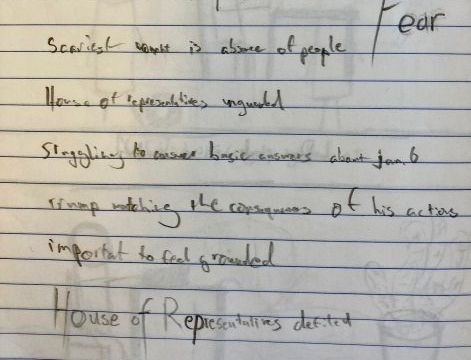 Fear
Scariest is absence of people
House of representatives unguarded
Struggling to answer basic answers about jan. 6
Trump watching the consequences of his actions
importat to feel grounded
House of Representatives